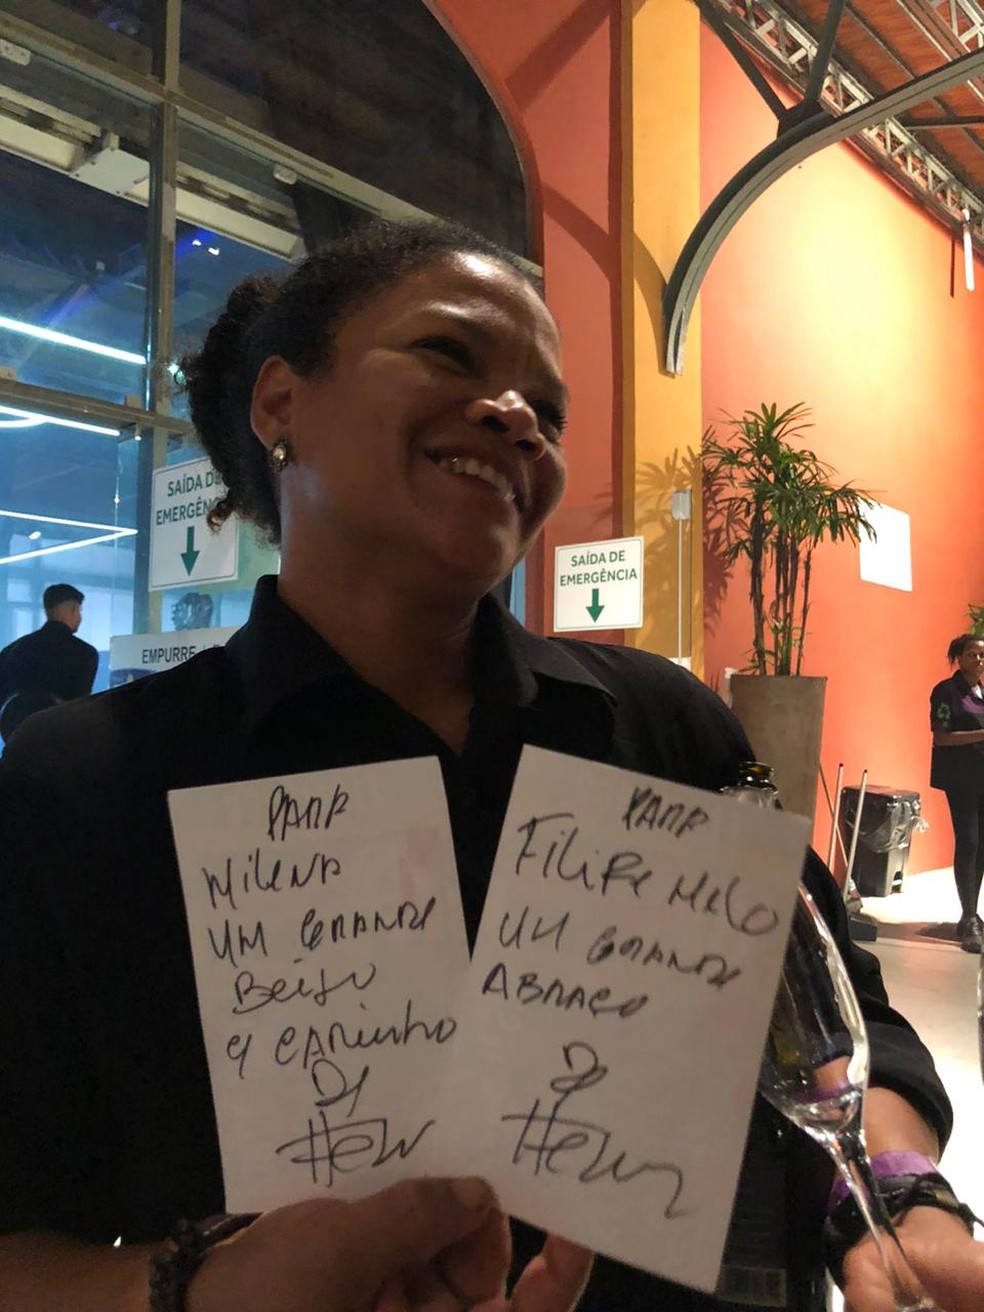 SAÍDA DE
EMERGÊN
SAÍDA DE
EMERGÊNCIA
EMPURRE
PARA
MILENA
UM GRANDE
BEIJO
E CARINHO
DI
PARA
FILIPE MELO
UM GRANDE
ABRAÇO